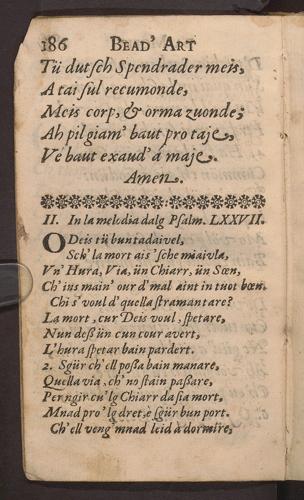 186 BEAD' ART
Tü dutsch Spendrader meis,
A tai sul recumonde,
Meis corp, & orma zuonde;
Ah pilgiam' baut pro taje,
Ve baut exaud' á maje.
Amen.
II. In la melodia dalg Psalm. LXXVII.
O Deis tü buntadaivel,
Sch' la mort ais 'sche miaivla,
Vn' Hura, Via, ün Chiarr, ün Sœn,
Ch' ins main' our d' mal aint in tuot bœn.
Chi s' voul d' quella stramantare?
La mort, cur Deis voul, spetare,
Nun deß ün cun cour avert,
L'hura spetar bain pardert.
2. Sgür ch' ell poßa bain manare,
Quella via, ch' no stain paßare,
Per ngir cu' lg Chiarr da sia mort,
Mnad pro 'lg dret, e sgür bun port.
Ch' ell veng' mnad leid à dormire,